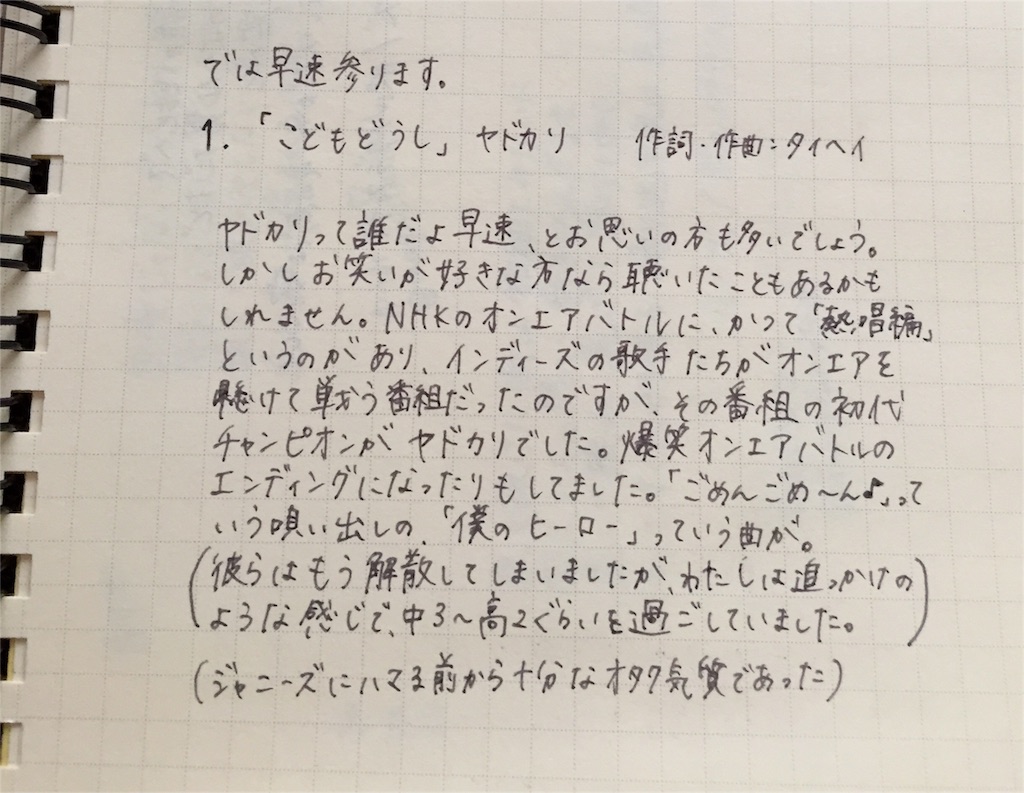 では早速参ります。
1. 「こどもどうし」 ヤドカリ 作詞・作曲:タイヘイ
ヤドカリって誰だよ早速、とお思いの方も多いでしょう。
しかしお笑いが好きな方なら聴いたこともあるかも
しれません。NHKのオンエアバトルに、かつて「熱唱編」
というのがあり、インディーズの歌手たちがオンエアを
懸けて戦う番組だったのですが、その番組の初代
チャンピオンがヤドカリでした。爆笑オンエアバトルの
エンディングになったりもしてました。「ごめんごめ〜ん♪」って
いう唄い出しの、「僕のヒーロー」っていう曲が。
(彼らはもう解散してしまいましたが、わたしは追っかけの
ような感じで、中3〜高2ぐらいを過ごしていました。)
(ジャニーズにハマる前から十分なオタク気質であった)